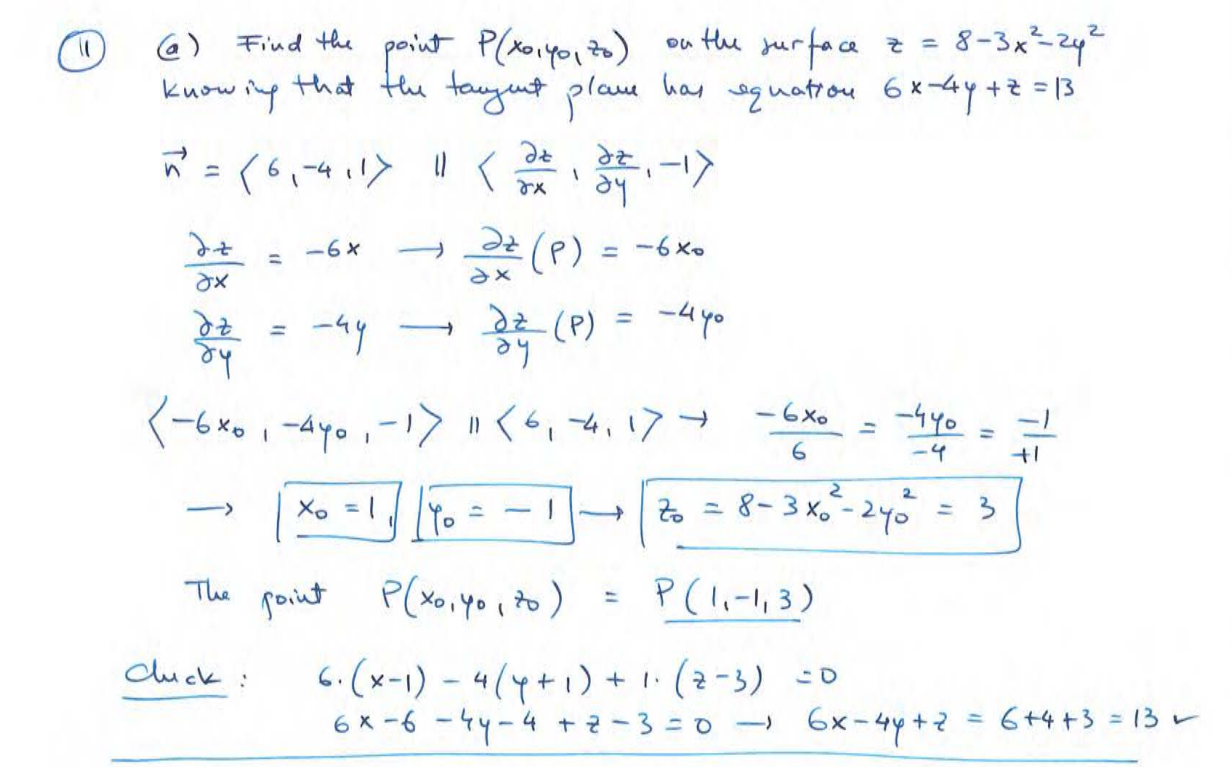 11 (a) Find the point P(x₀,y₀,z₀) on the surface z = 8-3x²-2y²
knowing that the tangent plane has equation 6x-4y+z=13
n⃗ = ⟨6,-4,1⟩ ∥ ⟨∂z/∂x, ∂z/∂y, -1⟩
∂z/∂x = -6x → ∂z/∂x (P) = -6x₀
∂z/∂y = -4y → ∂z/∂y (P) = -4y₀
⟨-6x₀, -4y₀, -1⟩ ∥ ⟨6, -4, 1⟩ → -6x₀/6 = -4y₀/-4 = -1/+1
→ x₀ = 1, y₀ = -1 → z₀ = 8-3x₀²-2y₀² = 3
The point P(x₀,y₀,z₀) = P(1,-1,3)
Check: 6·(x-1) - 4(y+1) + 1·(z-3) = 0
6x-6-4y-4+z-3=0 → 6x-4y+z = 6+4+3 = 13 ✓